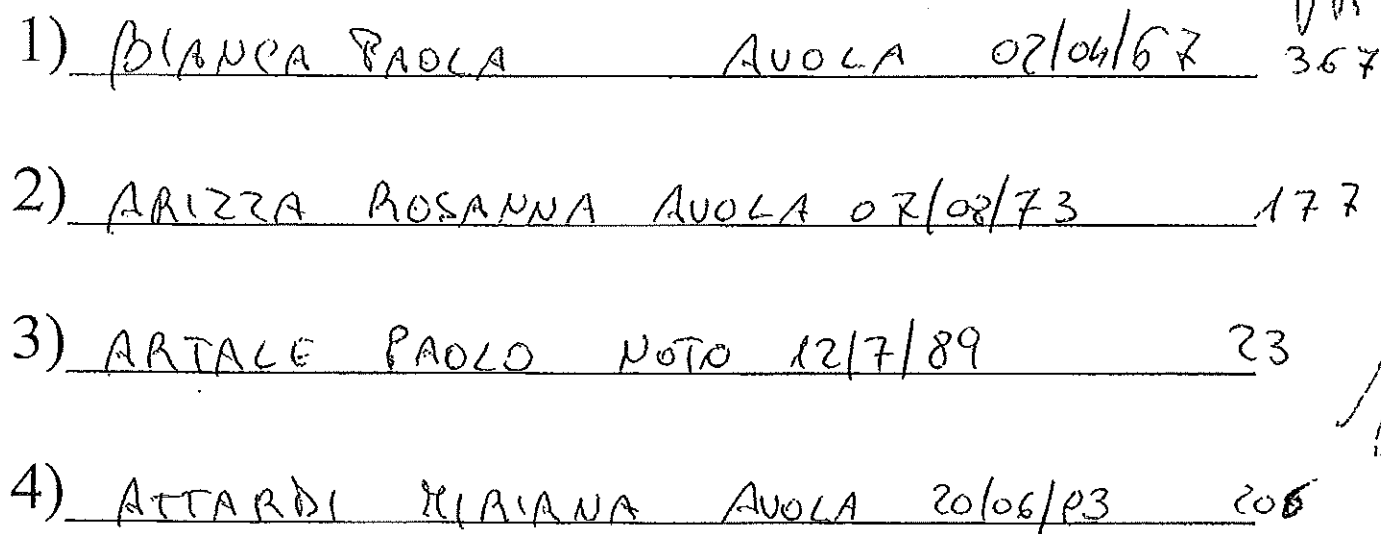 1) BIANCA PAOLA AVOLA 02/04/67 367
2) ARIZZA ROSANNA AVOLA 07/08/73 177
3) ARTALE PAOLO NOTO 12/7/89 23
4) ATTARDI MIRIANA AVOLA 20/06/93 206